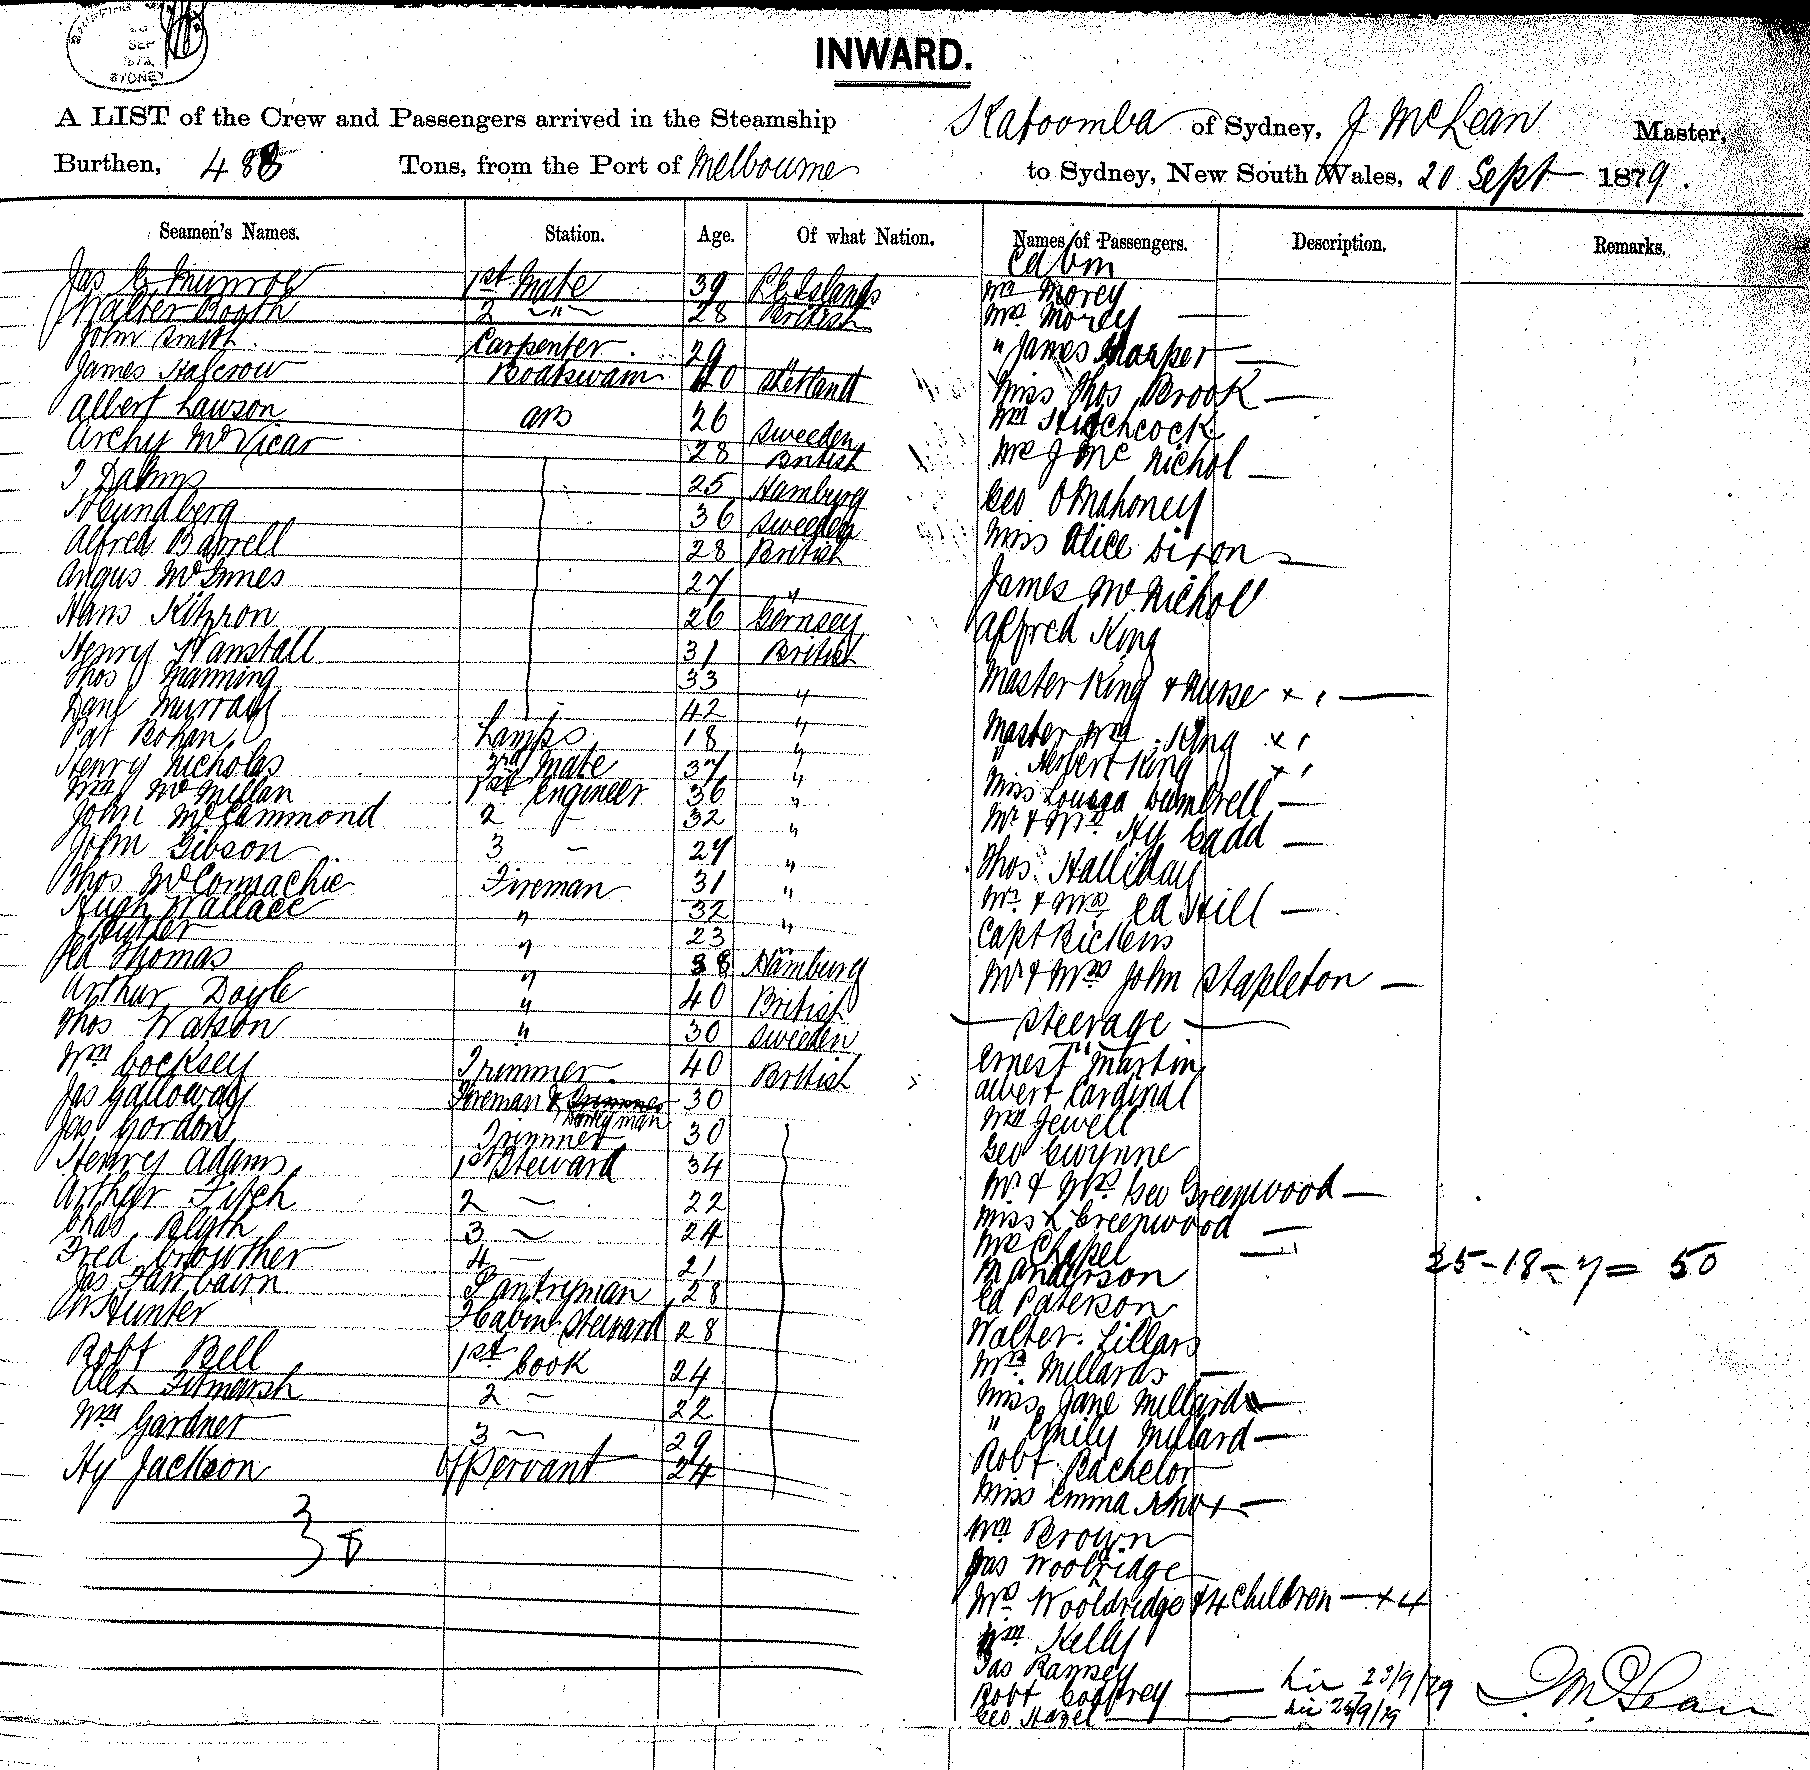 SEP
SYDNEY
INWARD.
A LIST of the Crew and Passengers arrived in the Steamship Katoomba of Sydney, J McLean Master,
Burthen, 488 Tons, from the Port of Melbourne to Sydney, New South Wales, 20 Sept 1879.
Seamen's Names. Station. Age. Of what Nation. Names of Passengers. Description. Remarks.
Cabin
Jas Munroe 1st Mate 39
Walter Booth 2 " 28 British
John Smith Carpenter 29
James Halcrow Boatswain 40 Shetland
Albert Lawson AB 26 Sweeden
Archy McVicar 28 British
25 Hamburg
36 Sweeden
Alfred Barrell 28 British
Angus McInnes 27 "
Hans 26 Gernsey
Henry Wanstall 31 British
Thos Manning 33 "
Danl Murray 42 "
Pat Bohan Lamps 18 "
Henry Nicholas 3rd Mate 37 "
Wm McMillan 1st Engineer 36 "
John McCammond 2 - 32 "
John Gibson 3 - 27 "
Thos McConnachie Fireman 31 "
Hugh Wallace " 32 "
" 23
Ed Thomas " 38 Hamburg
Arthur Doyle " 40 British
Thos Watson " 30 Sweeden
Wm Cocksey Trimmer 40 British
Jas Galloway Fireman & Donkeyman 30
Jas Gordon Trimmer 30
Henry Adams 1st Steward 34
Arthur Fitch 2 - 22
Chas Blyth 3 - 24
Fred Crowther 4 - 21
Jas Fairbairn Pantryman 28
W Hunter F Cabin Steward 28
Robt Bell 1st Cook 24
Alex Titmarsh 2 - 22
Wm Gardner 3 - 29
Hy Jackson Of Servant 24
38
Wm Morey
Mrs Morey
" James Harper
Miss Thos Brook
Wm Hitchcock
Mrs J McNichol
Geo OMahoney
Miss Alice Dixon
James McNichol
Alfred King
Master King & Nurse x 1
Master Wm King x 1
" Herbert King x 1
Miss Louisa Dumbrell
Mr & Mrs Hy Cadd
Thos Halliday
Mr & Mrs Ed Hill
Capt Rickens
Mr & Mrs John Stapleton
Steerage
Ernest Martin
Albert Cardinal
Wm Jewell
Geo Gwynne
Mr & Mrs Geo Greenwood
Miss L Greenwood
Mrs Chapel
R Anderson
Ed Paterson
Walter Lillars
Mrs Millards
Miss Jane Millard
" Emily Millard
Robt Bachelor
Miss Emma Knox
Wm Brown
Jas Woolridge
Mrs Wooldridge & 4 Children + 4
Wm Kelly
Jas Ramsey
Robt Godfrey 23/9/79
Geo Hazel
25-18-7= 50
J. McLean